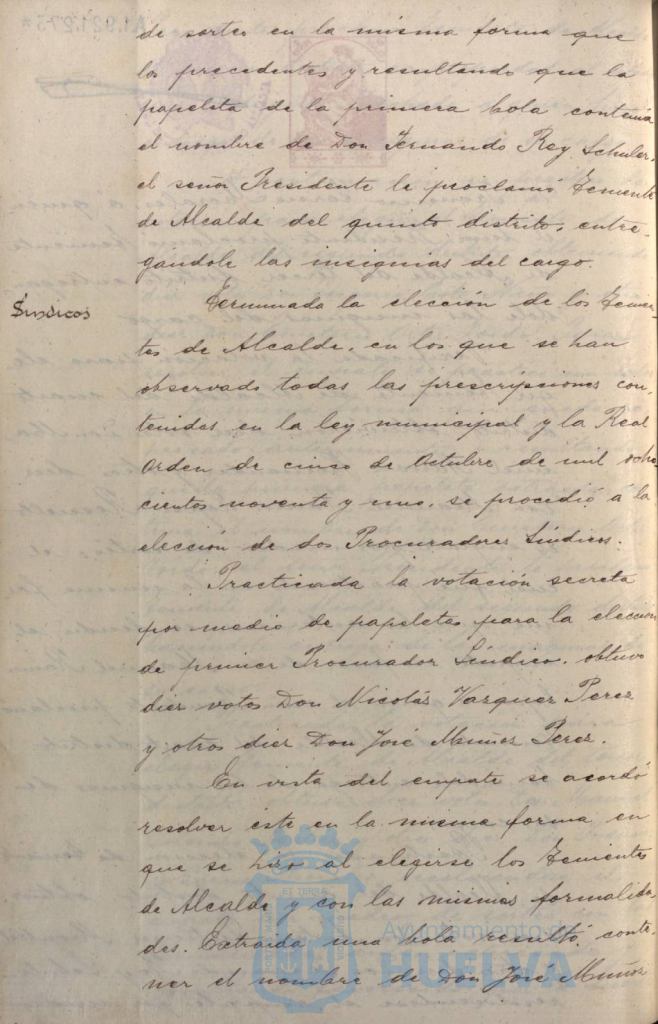 de sorteo en la misma forma que
los precedentes y resultando que la
papeleta de la primera bola contenia
el nombre de Don Fernando Rey Schuler,
el señor Presidente le proclamó Teniente
de Alcalde del quinto distrito, entre-
gandole las insignias del cargo.
Síndicos
Terminada la elección de los Tenien-
tes de Alcalde, en los que se han
observado todas las prescripciones con-
tenidas en la ley municipal y la Real
orden de cinco de Octubre de mil ocho
cientos noventa y uno, se procedió á la
elección de dos Procuradores Síndicos.
Practicada la votación secreta
por medio de papeletas para la elección
de primer Procurador Síndico, obtuvo
diez votos Don Nicolás Vazquez Perez
y otros diez Don José Muñoz Perez.
En vista del empate se acordó
resolver este en la misma forma en
que se hizo al elegirse los Tenientes
de Alcalde y con las mismas formalida-
des. Extraida una bola resultó conte-
ner el nombre de Don José Muñoz
Ayuntamiento de
HUELVA